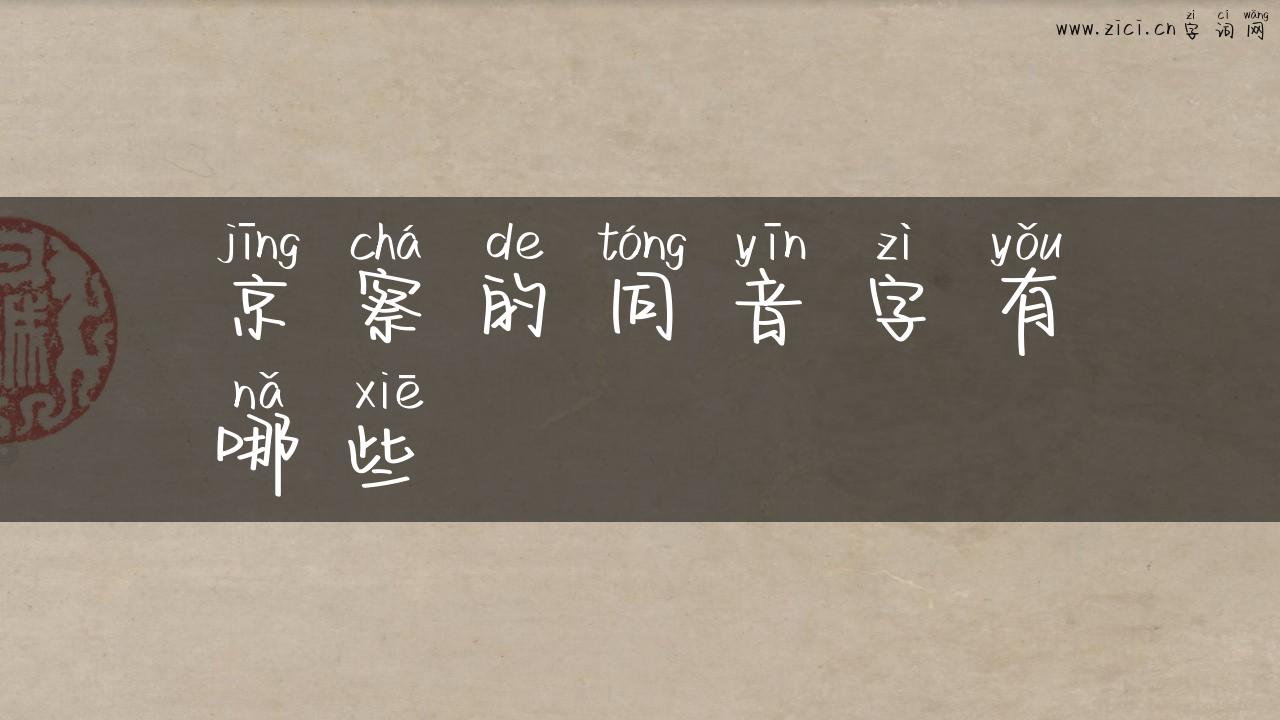 zì cí wǎng
www.zici.cn字词网
jīng chá de tóng yīn zì yǒu
京察的同音字有
nǎ xiē
哪些